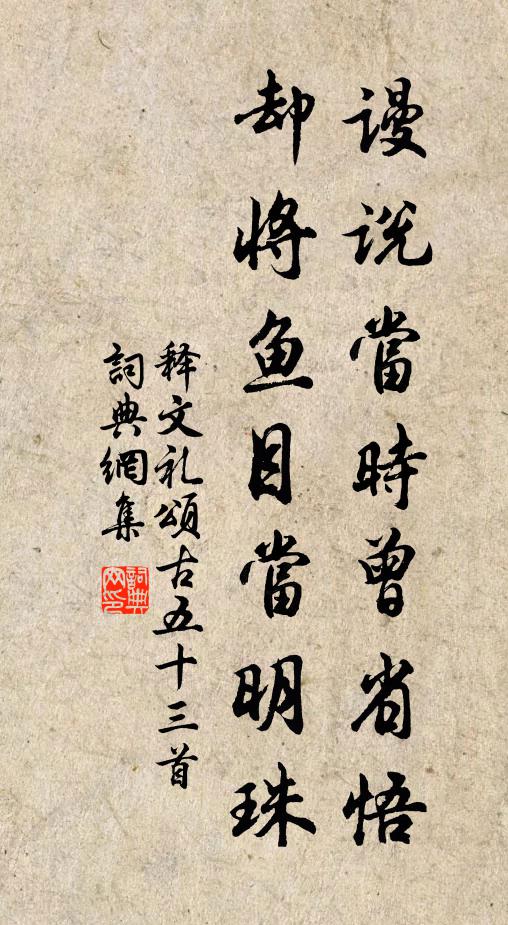 謾說當時曾省悟
却將鱼目當明珠
释文礼頌古五十三首
詞典網集
詞典网印